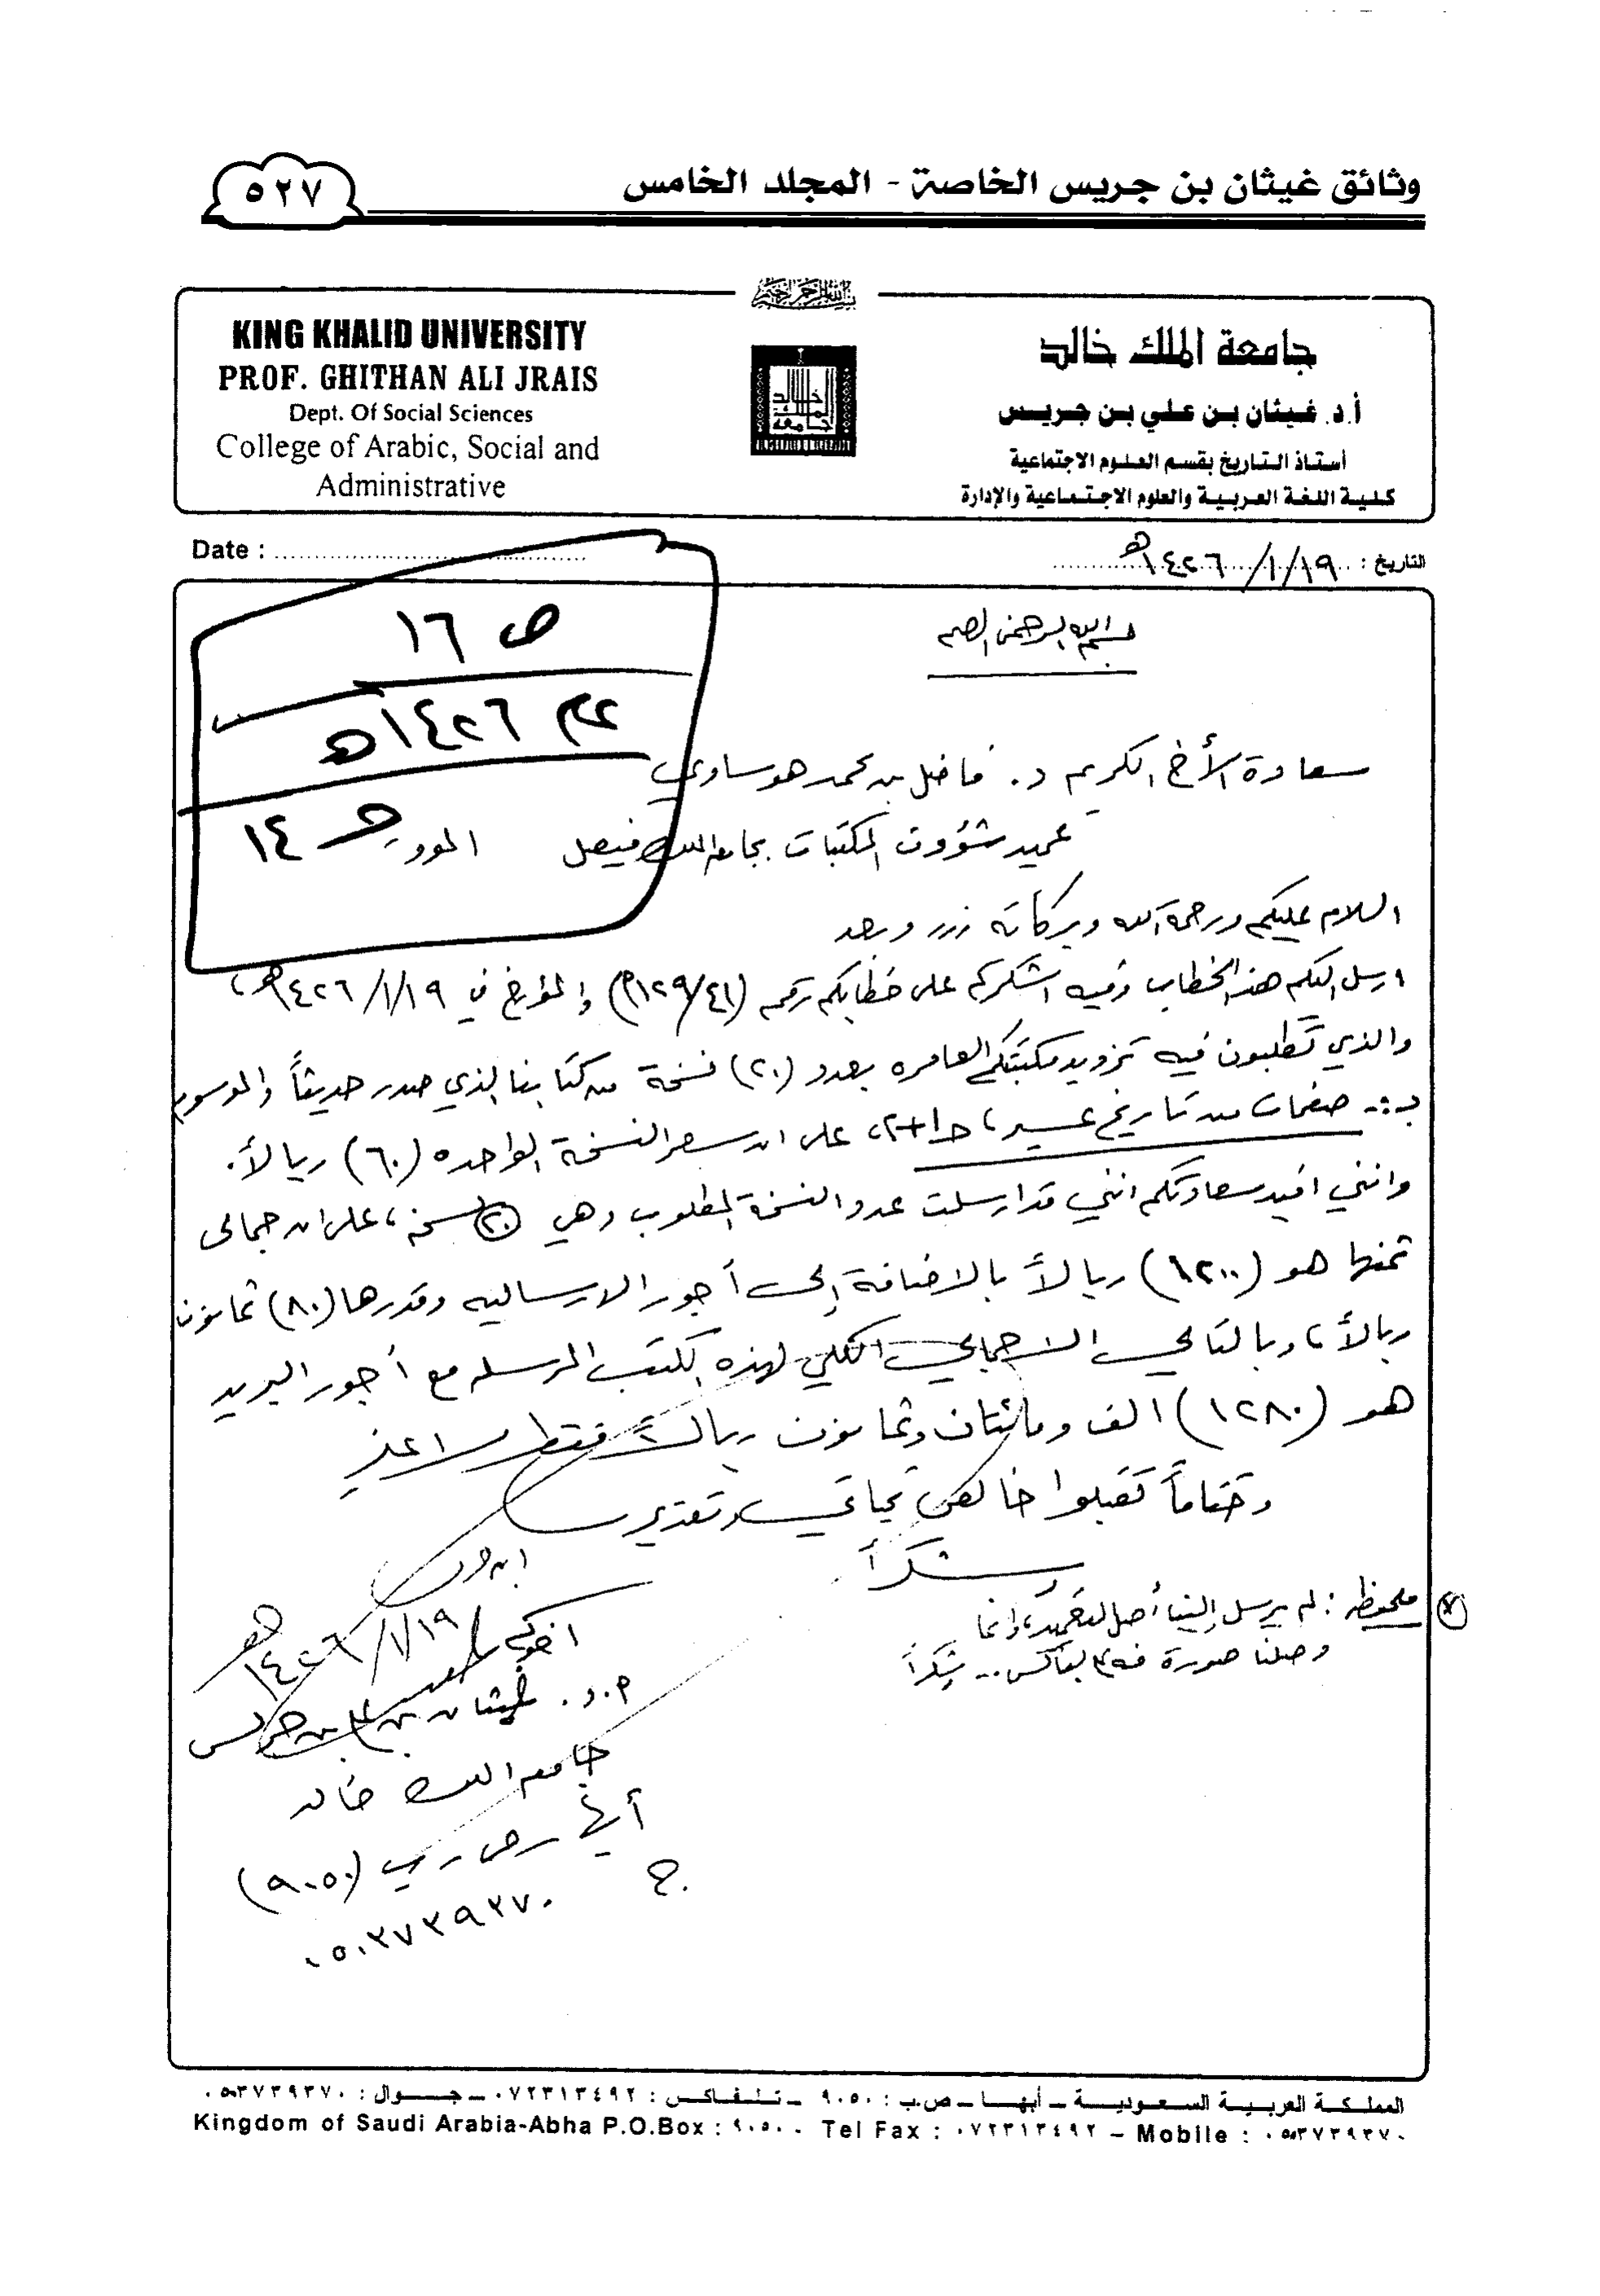 وثائق غيثان بن جريس الخاصة - المجلد الخامس
٥٢٧
بسم الله الرحمن الرحيم
KING KHALID UNIVERSITY
PROF. GHITHAN ALI JRAIS
Dept. Of Social Sciences
College of Arabic, Social and
Administrative
جامعة الملك خالد
أ.د. غيثان بن علي بن جريس
أستاذ التاريخ بقسم العلوم الاجتماعية
كلية اللغة العربية والعلوم الاجتماعية والإدارة
Date :
التاريخ : ١٩/١/١٤٢٦هـ
ص ١٦
عام ١٤٢٦هـ
جـ ١٤
بسم الله الرحمن الرحيم
سعادة الأخ الكريم د. فاضل بن محمد هوساوي
عميد شؤون المكتبات بجامعة الملك فيصل الموقر
السلام عليكم ورحمة الله وبركاته ... وبعد
ارسل اليكم هذا الخطاب وفيه اشكركم على خطابكم رقم (١٢٩/٤١م) والمؤرخ في ١٩/١/١٤٢٦هـ،
والذي تطلبون فيه تزويد مكتبتكم العامره بعدد (٢٠) نسخة من كتابنا الذي صدر حديثاً والموسوم
بـ :- صفحات من تاريخ عسير، جـ١+٢، على ان سعر النسخة الواحده (٦٠) ريالاً.
وانني افيد سعادتكم انني قد ارسلت عدد النسخ المطلوب وهي (٢٠) نسخه، على ان جمالى
ثمنها هو (١٢٠٠) ريالاً بالاضافة إلى أجور الارساليه وقدرها (٨٠) ثمانون
ريالاً، وبالتالي الاجمالي الكلي لهذه الكتب المرسله مع أجور البريد
هو (١٢٨٠) الف ومائتان وثمانون ريالاً فقط لا غير
وختاماً تقبلوا خالص تحياتي وتقديري
شكراً
ملحوظه : لم يرسل إلينا أصل التعميد، وانما
وصلنا صورة منه بفاكس .. شكراً
اخوكم
١٩/١/١٤٢٦هـ
أ.د. غيثان بن علي بن جريس
جامعة الملك خالد
أبها ص ب (٩٠٥٠)
ج. ٠٥٠٣٧٣٩٣٧٠
المملكة العربية السعودية – أبها – ص.ب : ٩٠٥٠ – تلفاكس : ٠٧٢٣١٣٤٩٢ – جوال : ٠٥٠٣٧٣٩٣٧٠
Kingdom of Saudi Arabia-Abha P.O.Box : ٩٠٥٠ - Tel Fax : ٠٧٢٣١٣٤٩٢ – Mobile : ٠٥٠٣٧٣٩٣٧٠